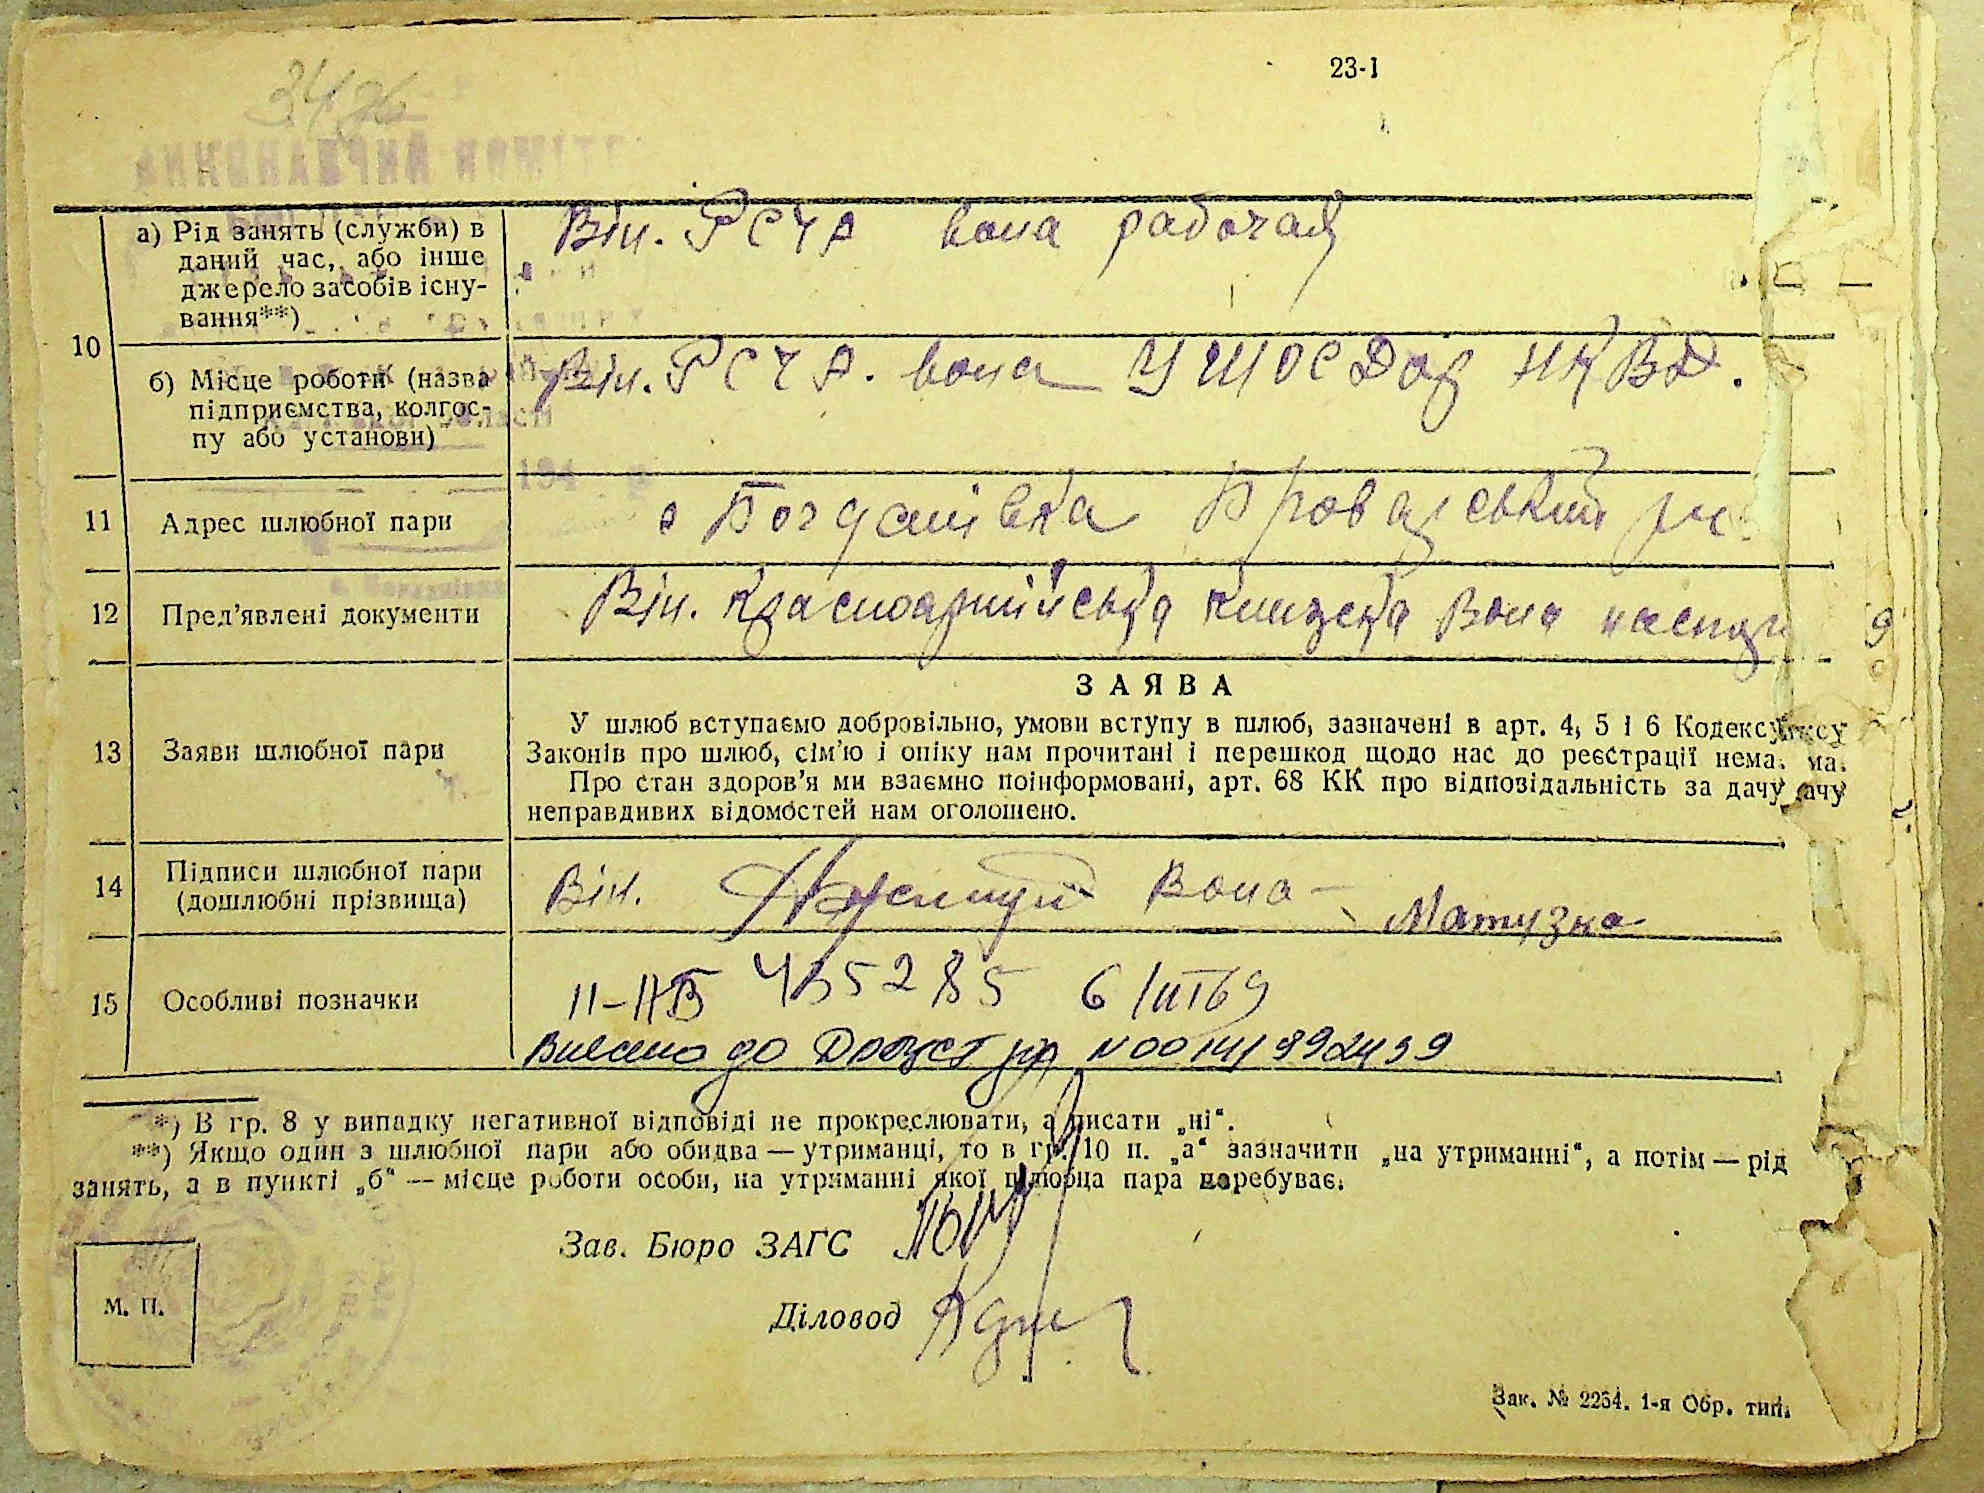 23-1
а) Рід занять (служби) в
даний час, або інше
джерело засобів існу-
вання**)
Він. РСЧА вона рабочая
10
б) Місце роботи (назва
підприємства, колгос-
пу або установи)
Він. РСЧА. вона УШОСДор НКВД.
11
Адрес шлюбної пари
с Богданівка Броварський
12
Пред’явлені документи
Він. Красноармийська книжка Вона
13
Заяви шлюбної пари
ЗАЯВА
У шлюб вступаємо добровільно, умови вступу в шлюб, зазначені в арт. 4, 5 і 6 Кодексу
Законів про шлюб, сім’ю і опіку нам прочитані і перешкод щодо нас до реєстрації нема.
Про стан здоров’я ми взаємно поінформовані, арт. 68 КК про відповідальність за дачу
неправдивих відомостей нам оголошено.
14
Підписи шлюбної пари
(дошлюбні прізвища)
Він. Вона - Матузка
15
Особливі позначки
II-НБ 6/III69
до
*) В гр. 8 у випадку негативної відповіді не прокреслювати, а писати „ні“.
**) Якщо один з шлюбної пари або обидва — утриманці, то в гр. 10 п. „а“ зазначити „на утриманні“, а потім — рід
занять, а в пункті „б“ — місце роботи особи, на утриманні якої шлюбна пара перебуває.
Зав. Бюро ЗАГС
М. П.
Діловод
Зак. № 2264. 1-я Обр. тип.